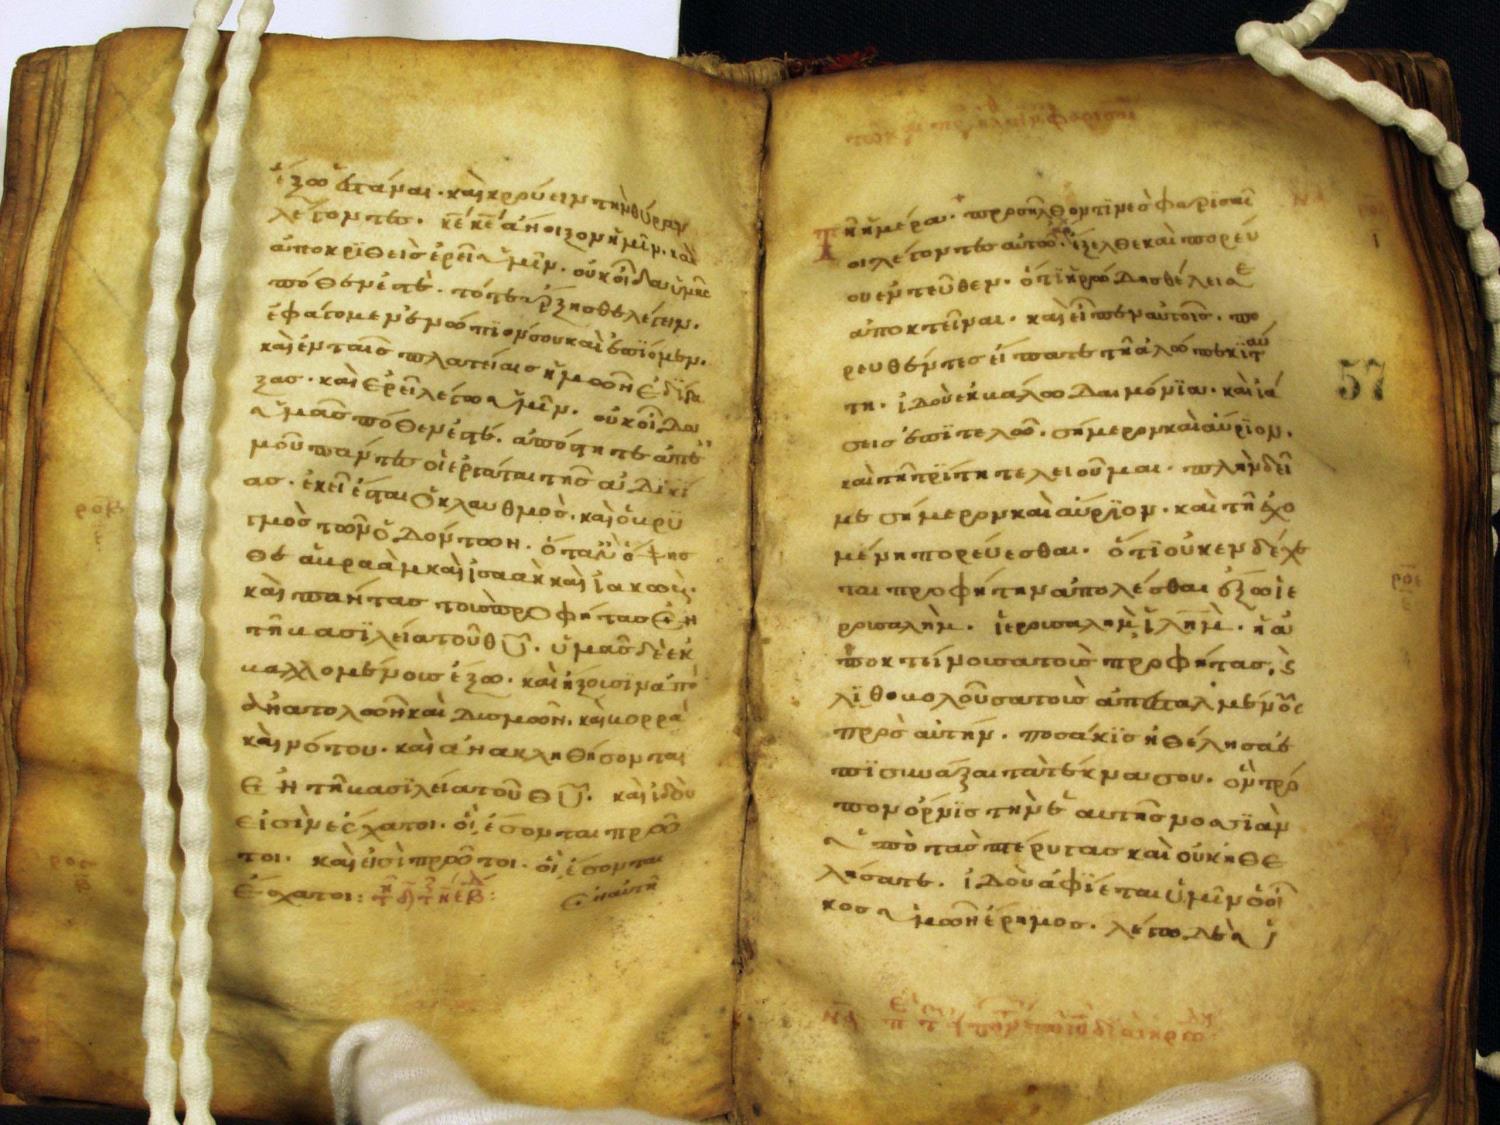 ἔξω ἑστάναι· καὶ κρούειν τὴν θύραν
λέγοντες· κ̅ε̅ κ̅ε̅ ἄνοιξον ἡμῖν· καὶ
ἀποκριθεὶς ἐρεῖ ὑμῖν· οὐκ οἶδα ὑμᾶς
πόθεν ἐστέ· τότε ἄρξησθε λέγειν·
ἐφάγομεν ἐνώπϊόν σου καὶ ἐπίομεν·
καὶ ἐν ταῖς πλατείαις ἡμῶν ἐδίδα
ξας· καὶ ἐρεῖ λέγω ὑμῖν· οὐκ οἶδα
ὑμᾶς πόθεν ἐστέ· ἀπόστητε ἀπ' ἐ
μοῦ πάντες οἱ ἐργάται τῆς ἀδικί
ας· ἐκεῖ ἔσται ὁ κλαυθμὸς· καὶ ὁ βρυ
γμὸς τῶν ὀδόντων· ὅταν ὄψησ
θε ἀβραὰμ καὶ ἰσαὰκ καὶ ἰακώβ·
καὶ πάντας τοὺς προφήτας ἐν
τῆ βασϊλεία τοῦ θ̅υ̅· ὑμᾶς δὲ ἐκ
βαλλομένους ἔξω· καὶ ἥξουσιν ἀπὸ
ἀνατολῶν καὶ δυσμῶν· καὶ βορρᾶ
καὶ νότου· καὶ ἀνακληθήσονται
ἐν τῆ βασιλεία τοῦ θ̅υ̅· καὶ ἰδοὺ
εἰσὶν ἔσχατοι· οἳ ἔσονται πρῶ
τοι· καὶ εἰσὶ πρῶτοι· οἳ ἔσονται
ἔσχατοι:
Ἐν αὐτῆ
Τῆ ἡμέρα· προσῆλθον τϊνὲς φαρϊσαῖ
οι λέγοντες αὐτῶ· ἔξελθε καὶ πορεύ
ου ἐντεῦθεν· ὅτι ἡρώδης θέλει σε
ἀποκτεῖναι· καὶ εἶπεν αὐτοῖς· πο
ρευθέντες εἴπατε τῆ ἀλώπεκϊ ταύ
τη· ἰδοὺ ἐκβάλω δαιμόνϊα· καὶ ἰά
σεις ἐπιτελῶ· σήμερον καὶ αὔρϊον·
καὶ τῆ τρίτη τελειοῦμαι· πλὴν δεῖ
με σήμερον καὶ αὔρϊον· καὶ τῆ ἐχο
μένη πορεύεσθαι· ὅτι οὐκ ἐνδέχε
ται προφήτην ἀπολέσθαι ἔξω ἱε
ρουσαλὴμ· ἱερουσαλὴμ ἰ̅λ̅η̅μ̅· ἡ ἀ
ποκτείνουσα τοὺς προφήτας, ϗ
λϊθοβολοῦσα τοὺς ἀπεσταλμένους
πρὸς αὐτήν· ποσάκϊς ἠθέλησα ἐ
πϊσυνάξαι τὰ τέκνα σου· ὃν τρό
πον ὄρνϊς τὴν ἑαυτῆς νοσσϊὰν
ὑπὸ τὰς πτέρυγας καὶ οὐκ ἠθε
λήσατε· ἰδοὺ ἀφίεται ὑμῖν ὁ οἶ
κος ὑμῶν ἔρημος· λέγω δὲ ὑ
57